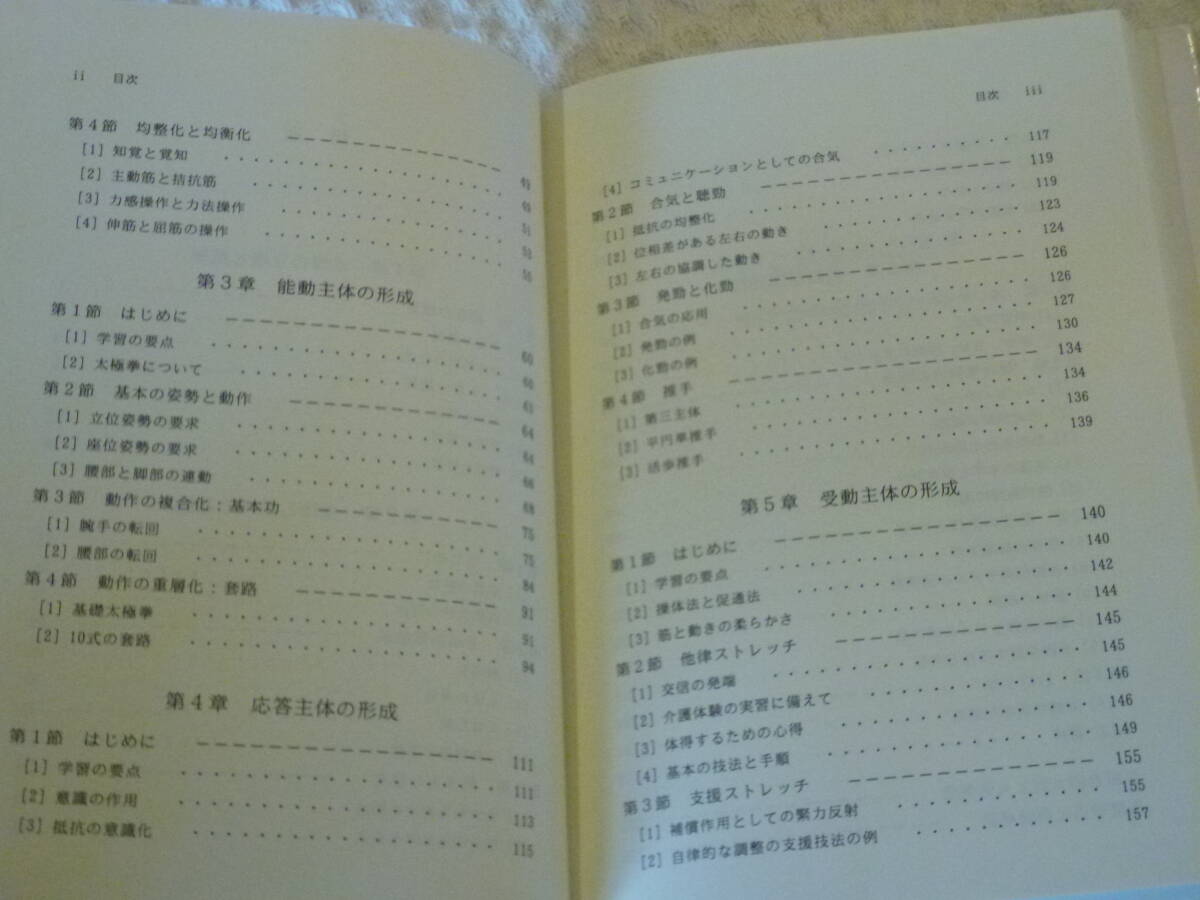 ii 目次
第4節 均整化と均衡化 ―――――――――― 49
[1] 知覚と覚知 ・・・・・・・・・・ 49
[2] 主動筋と拮抗筋 ・・・・・・・・・・ 51
[3] 力感操作と力法操作 ・・・・・・・・・・ 53
[4] 伸筋と屈筋の操作 ・・・・・・・・・・ 55
第3章 能動主体の形成
第1節 はじめに ―――――――――― 60
[1] 学習の要点 ・・・・・・・・・・ 60
[2] 太極拳について ・・・・・・・・・・ 63
第2節 基本の姿勢と動作 ―――――――――― 64
[1] 立位姿勢の要求 ・・・・・・・・・・ 64
[2] 座位姿勢の要求 ・・・・・・・・・・ 66
[3] 腰部と脚部の連動 ・・・・・・・・・・ 68
第3節 動作の複合化:基本功 ―――――――――― 75
[1] 腕手の転回 ・・・・・・・・・・ 75
[2] 腰部の転回 ・・・・・・・・・・ 84
第4節 動作の重層化:套路 ―――――――――― 91
[1] 基礎太極拳 ・・・・・・・・・・ 91
[2] 10式の套路 ・・・・・・・・・・ 94
第4章 応答主体の形成
第1節 はじめに ―――――――――― 111
[1] 学習の要点 ・・・・・・・・・・ 111
[2] 意識の作用 ・・・・・・・・・・ 113
[3] 抵抗の意識化 ・・・・・・・・・・ 115
目次 iii
[4] コミュニケーションとしての合気 ・・・・・・・・・・ 117
第2節 合気と聴勁 ―――――――――― 119
[1] 抵抗の均整化 ・・・・・・・・・・ 119
[2] 位相差がある左右の動き ・・・・・・・・・・ 123
[3] 左右の協調した動き ・・・・・・・・・・ 124
第3節 発勁と化勁 ―――――――――― 126
[1] 合気の応用 ・・・・・・・・・・ 126
[2] 発勁の例 ・・・・・・・・・・ 127
[3] 化勁の例 ・・・・・・・・・・ 130
第4節 推手 ―――――――――― 134
[1] 第三主体 ・・・・・・・・・・ 134
[2] 平円単推手 ・・・・・・・・・・ 136
[3] 活歩推手 ・・・・・・・・・・ 139
第5章 受動主体の形成
第1節 はじめに ―――――――――― 140
[1] 学習の要点 ・・・・・・・・・・ 140
[2] 操体法と促通法 ・・・・・・・・・・ 142
[3] 筋と動きの柔らかさ ・・・・・・・・・・ 144
第2節 他律ストレッチ ―――――――――― 145
[1] 交信の発端 ・・・・・・・・・・ 145
[2] 介護体験の実習に備えて ・・・・・・・・・・ 146
[3] 体得するための心得 ・・・・・・・・・・ 146
[4] 基本の技法と手順 ・・・・・・・・・・ 149
第3節 支援ストレッチ ―――――――――― 155
[1] 補償作用としての緊力反射 ・・・・・・・・・・ 155
[2] 自律的な調整の支援技法の例 ・・・・・・・・・・ 157